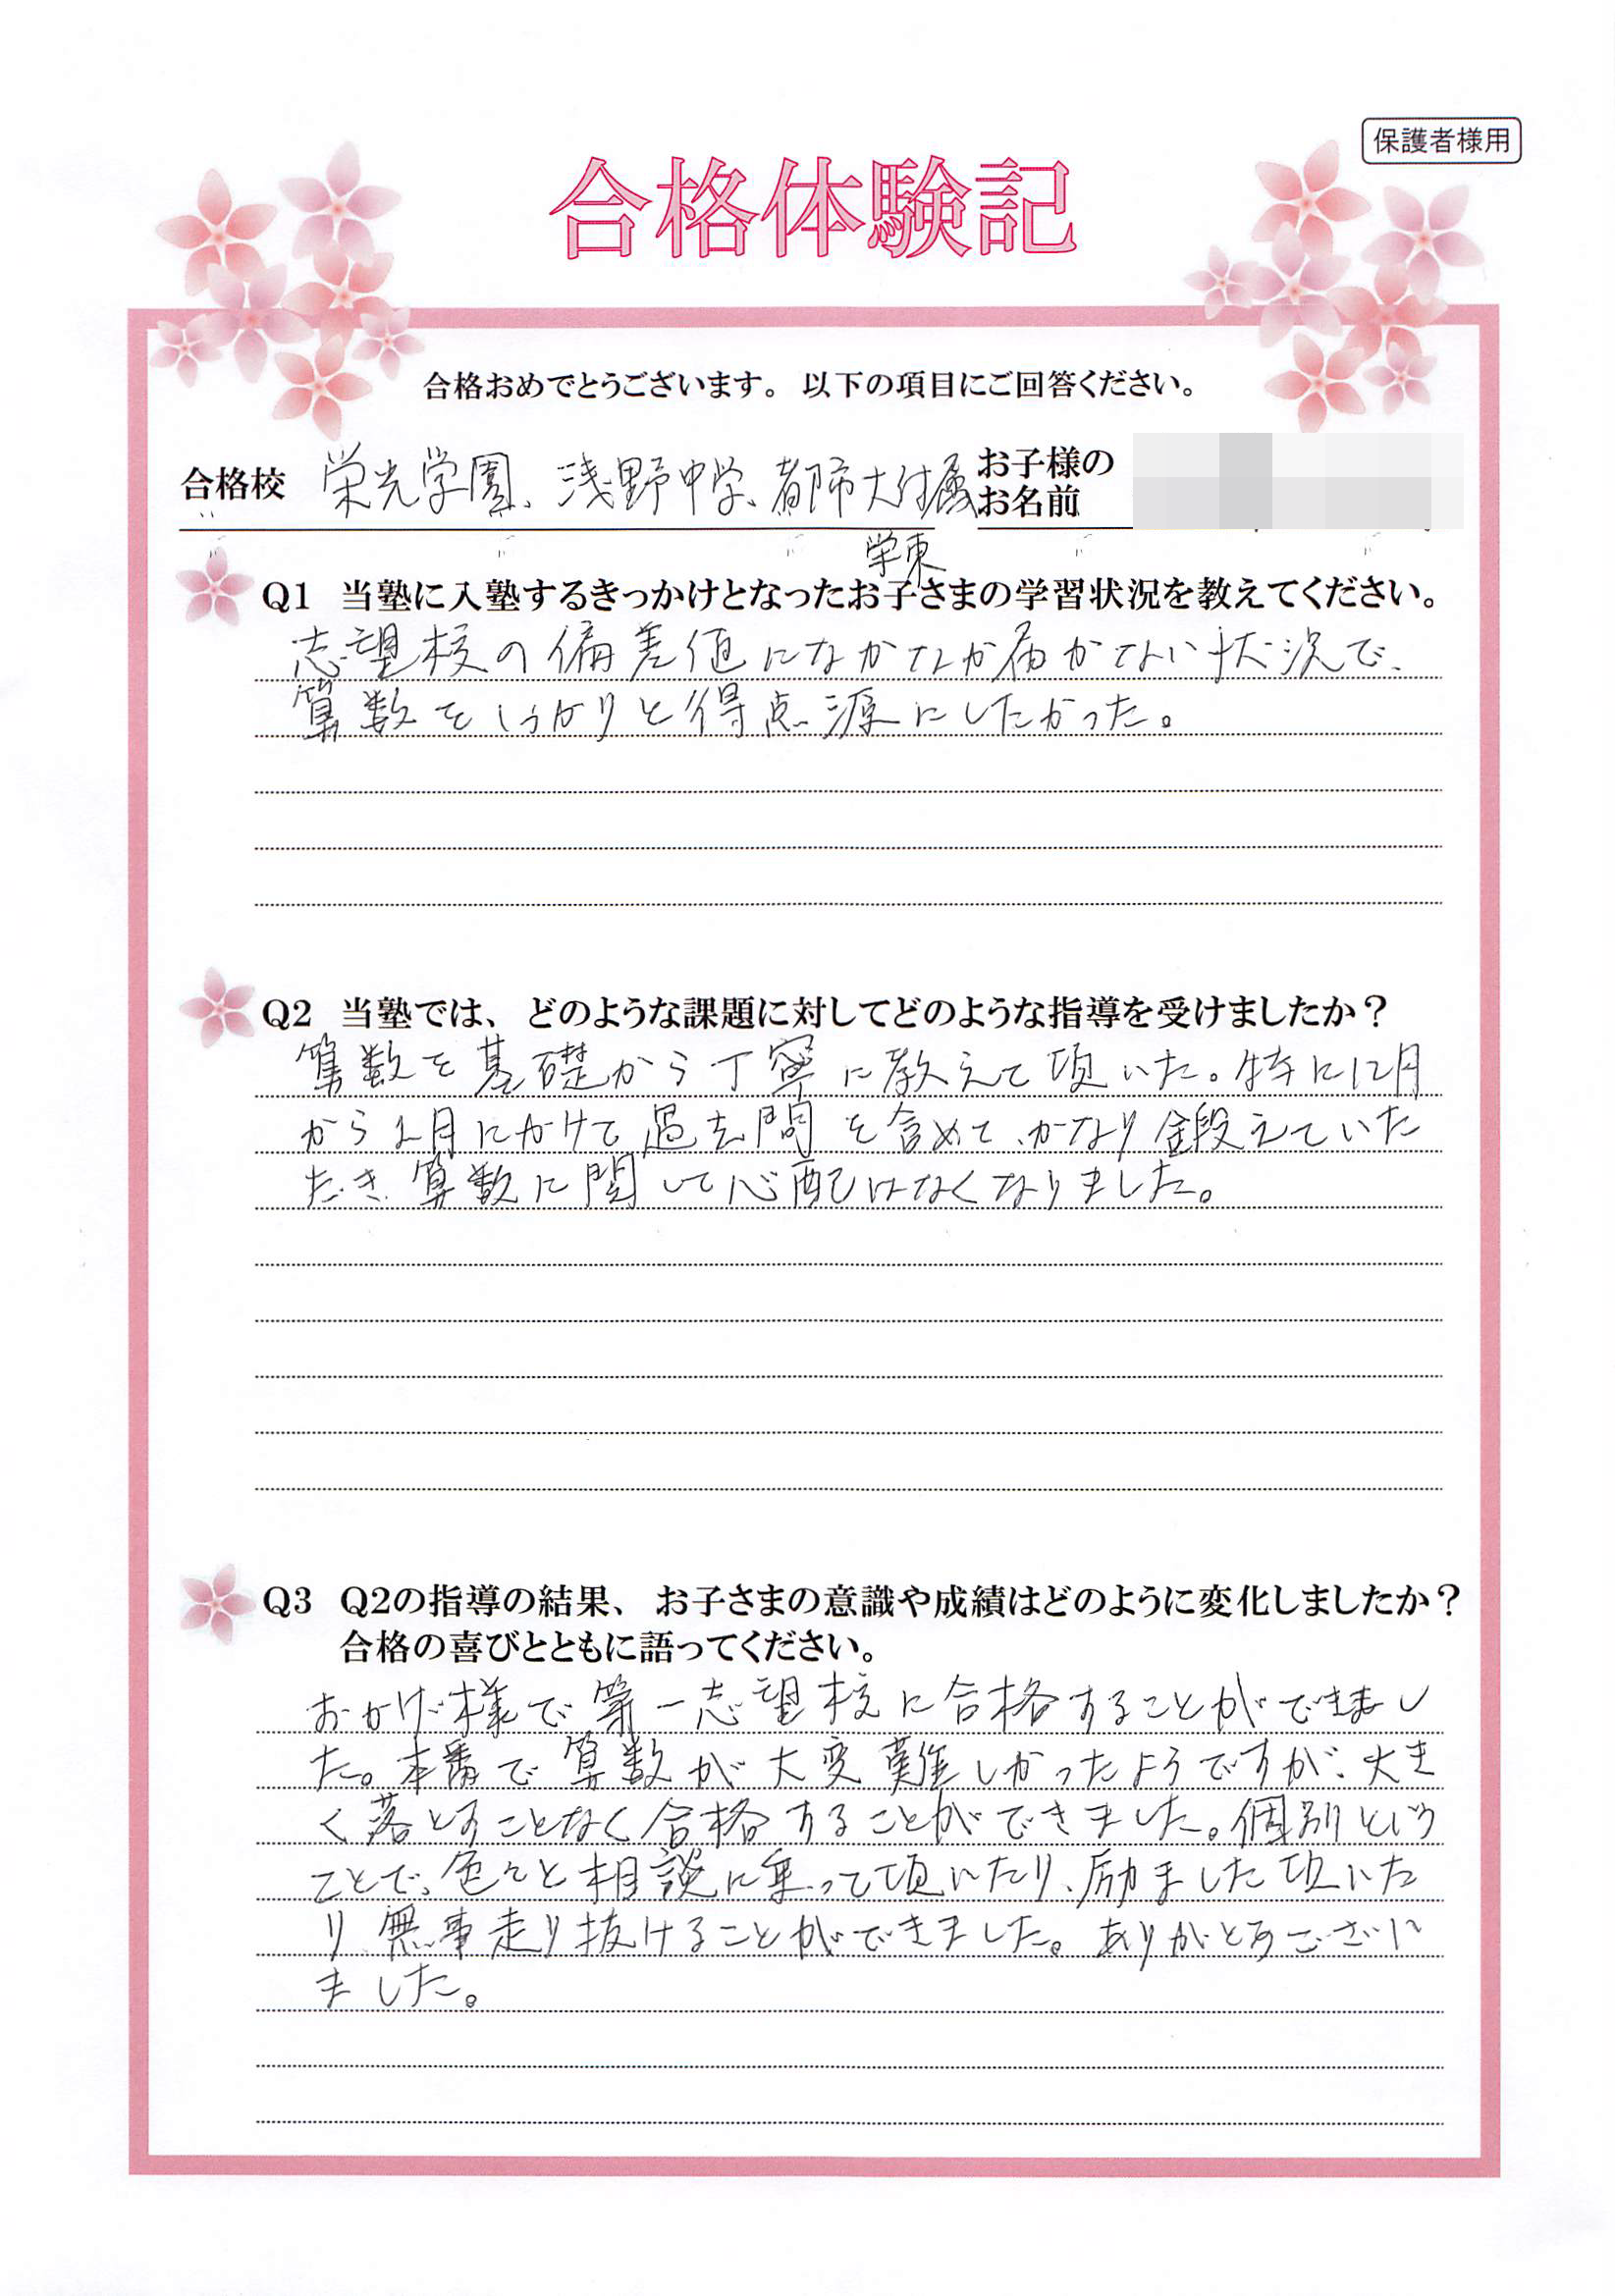 保護者様用
合格体験記
合格おめでとうございます。 以下の項目にご回答ください。
合格校 栄光学園、浅野中学、都市大付属
お子様の
お名前
栄東
Q1 当塾に入塾するきっかけとなったお子さまの学習状況を教えてください。
志望校の偏差値になかなか届かない状況で、
算数をしっかりと得点源にしたかった。
Q2 当塾では、どのような課題に対してどのような指導を受けましたか？
算数を基礎から丁寧に教えて頂いた。特に12月
から1月にかけて過去問を含めて、かなり鍛えていた
だき、算数に関して心配はなくなりました。
Q3 Q2の指導の結果、お子さまの意識や成績はどのように変化しましたか？
合格の喜びとともに語ってください。
おかげ様で第一志望校に合格することができまし
た。本番で算数が大変難しかったようですが、大き
く落とすことなく合格することができました。個別という
ことで、色々と相談に乗って頂いたり、励ました頂いた
り、無事走り抜けることができました。ありがとうござい
ました。